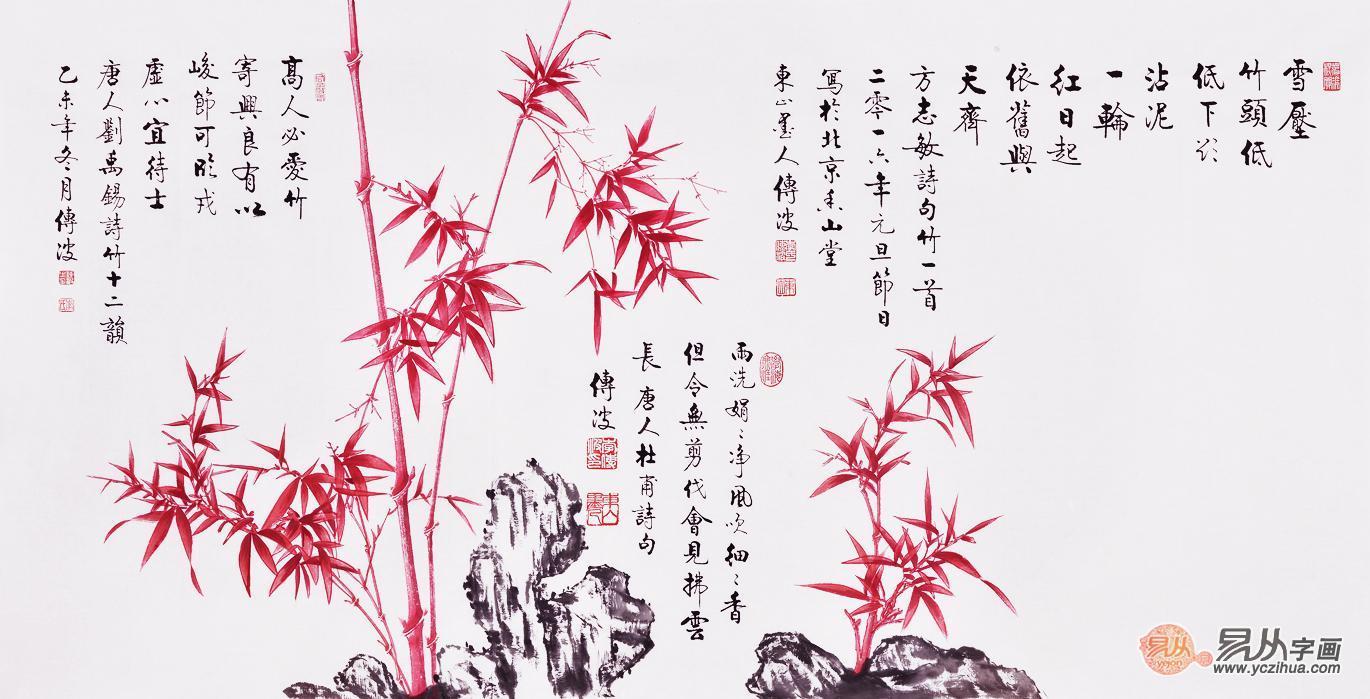 雪壓
竹頭低
低下欲
沾泥
一輪
紅日起
依舊與
天齊
方志敏詩句竹一首
二零一六年元旦節日
寫於北京香山堂
東山墨人傳波
雨洗娟〻净風吹細〻香
但令無剪伐會見拂雲
長唐人杜甫詩句
傳波
高人必愛竹
寄興良有以
峻節可臨戎
虛心宜待士
唐人劉禹錫詩竹十二韻
乙未年冬月傳波
易从字画
www.yczihua.com